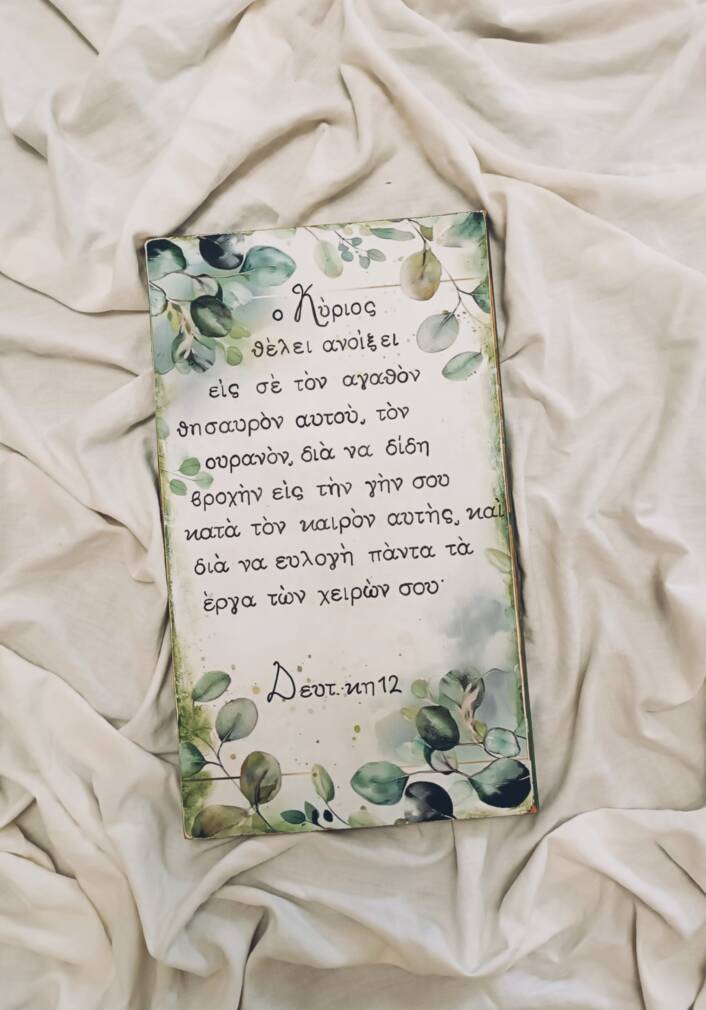 ο Κὺριος
θὲλει ανοὶξει
εὶς σὲ τὸν αγαθὸν
θησαυρὸν αυτοὺ, τὸν
ουρανὸν, διὰ να δὶδη
βροχὴν εὶς τὴν γὴν σου
κατὰ τὸν καιρὸν αυτὴς, καὶ
διὰ να ευλογὴ πὰντα τὰ
ὲργα τὼν χειρὼν σου·
Δευτ. κη 12